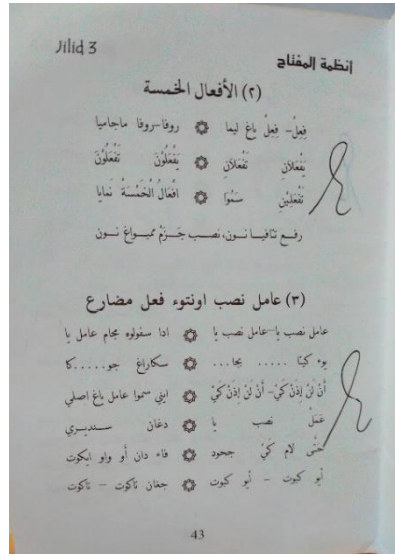 Jilid 3
انظمة المفتاح
(٢) الأفعال الخمسة
فِعِلْ – فِعِلْ ياغ ليما ۞ روفا–روفا ماجاميا
يَفْعَلَانِ تَفْعَلَانِ ۞ يَفْعَلُوْنَ تَفْعَلُوْنَ
تَفْعَلِيْنَ سَمُوَا ۞ افْعَالُ الْخَمْسَةْ نَمايا
رفع تتافيا نون، نصب جَزَمْ ممبواغ نون
(٣) عامل نصب اونتوء فعل مضارع
عامل نصب يا–عامل نصب يا ۞ ادا سفولوه مجام عامل يا
يوء كيتا ..... بجا... ۞ سكاراغ جو.....كا
أَنْ لَنْ إِذَنْ كَيْ – أَنْ لَنْ إِذَنْ كَيْ ۞ ايني سموا عامل ياغ اصلي
عَمَلْ نصب يا ۞ دغان سنديري
حَتَّى لام كَيْ جحود ۞ فاء دان أو واو ايكوت
أيو كبوت – أيو كبوت ۞ جغان تاكوت – تاكوت
43